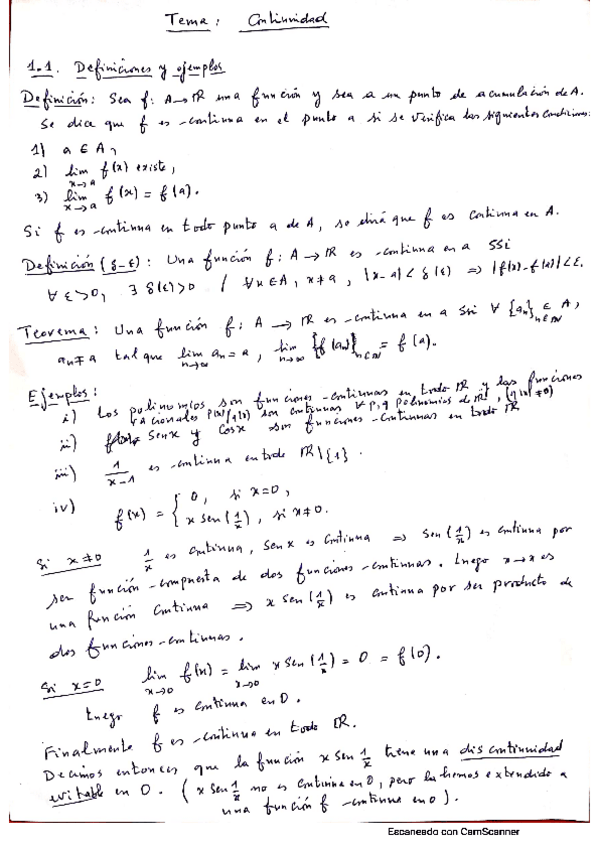 Tema: Continuidad
1.1. Definiciones y ejemplos
Definición: Sea f: A→ℝ una función y sea a un punto de acumulación de A.
Se dice que f es continua en el punto a si se verifica las siguientes condiciones:
1) a ∈ A,
2) lim_{x→a} f(x) existe,
3) lim_{x→a} f(x) = f(a).
Si f es continua en todo punto a de A, se dirá que f es continua en A.
Definición (δ-ε): Una función f: A → ℝ es continua en a ssi
∀ ε>0, ∃ δ(ε)>0 / ∀x∈A, x≠a, |x-a|< δ(ε) ⇒ |f(x)-f(a)|<ε.
Teorema: Una función f: A → ℝ es continua en a ssi ∀ {a_n}_{n∈ℕ} ∈ A,
a_n≠a tal que lim_{n→∞} a_n = a, lim_{n→∞} {f(a_n)}_{n∈ℕ} = f(a).
Ejemplos:
i) Los polinomios son funciones continuas en todo ℝ y las funciones
racionales p(x)/q(x) son continuas ∀ p, q polinomios de ℝ, (q(x) ≠0)
ii) sen x y cos x son funciones continuas en todo ℝ
iii) 1/(x-1) es continua en todo ℝ\{1}.
iv) f(x) = { 0, si x=0,
x sen(1/x), si x≠0.
Si x≠0 1/x es continua, sen x es continua ⇒ sen(1/x) es continua por
ser función compuesta de dos funciones continuas. Luego x→x es
una función continua ⇒ x sen(1/x) es continua por ser producto de
dos funciones continuas.
Si x=0 lim_{x→0} f(x) = lim_{x→0} x sen(1/x) = 0 = f(0).
Luego f es continua en 0.
Finalmente f es continua en todo ℝ.
Decimos entonces que la función x sen 1/x tiene una discontinuidad
evitable en 0. (x sen 1/x no es continua en 0, pero la hemos extendido a
una función f continua en 0).
Escaneado con CamScanner